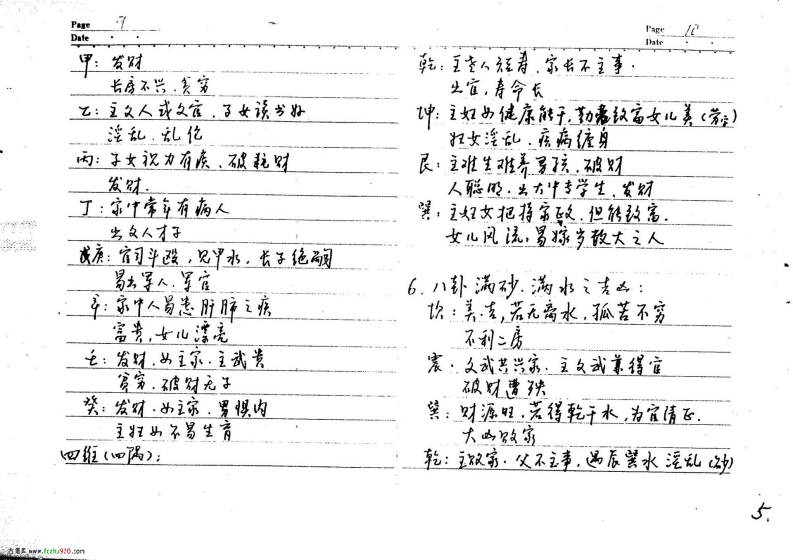 Page 9
Date
甲：发财
长房不兴、贫穷
乙：主文人或文官、子女读书好
淫乱、乱伦
丙：子女视力有疾、破耗财
发财．
丁：家中常年有病人
出文人才子
戌庚：官司斗殴，见甲水，长子绝嗣
易出军人、军官
辛：家中人易患肝肺之疾
富贵，女儿漂亮
壬：发财、女主家．主武贵
贫穷．破财无子
癸：发财．女主家．男惧内
主妇女不易生育
四维（四隅）：
Page 10
Date
乾：主老人短寿．家长不主事．
出官，寿命长
坤：主妇女健康能干，勤致富女儿美
妇女淫乱．疾病缠身
艮：主难生难养男孩，破财
人聪明．出大中专学生，发财
巽：主妇女把持家政．但能致富．
女儿风流，易嫁岁数大之人
6．八卦满砂．满水之吉凶：
坎：美．吉，若无离水，孤苦不穷
不利二房
震．文武共兴家．主文武兼得官
破财遭殃
巽：财源旺，若得乾干水，为官清正．
大凶败家
乾：主败家．父不主事，遇辰巽水淫乱（砂）
5.
古易库 www.fczhu920.com